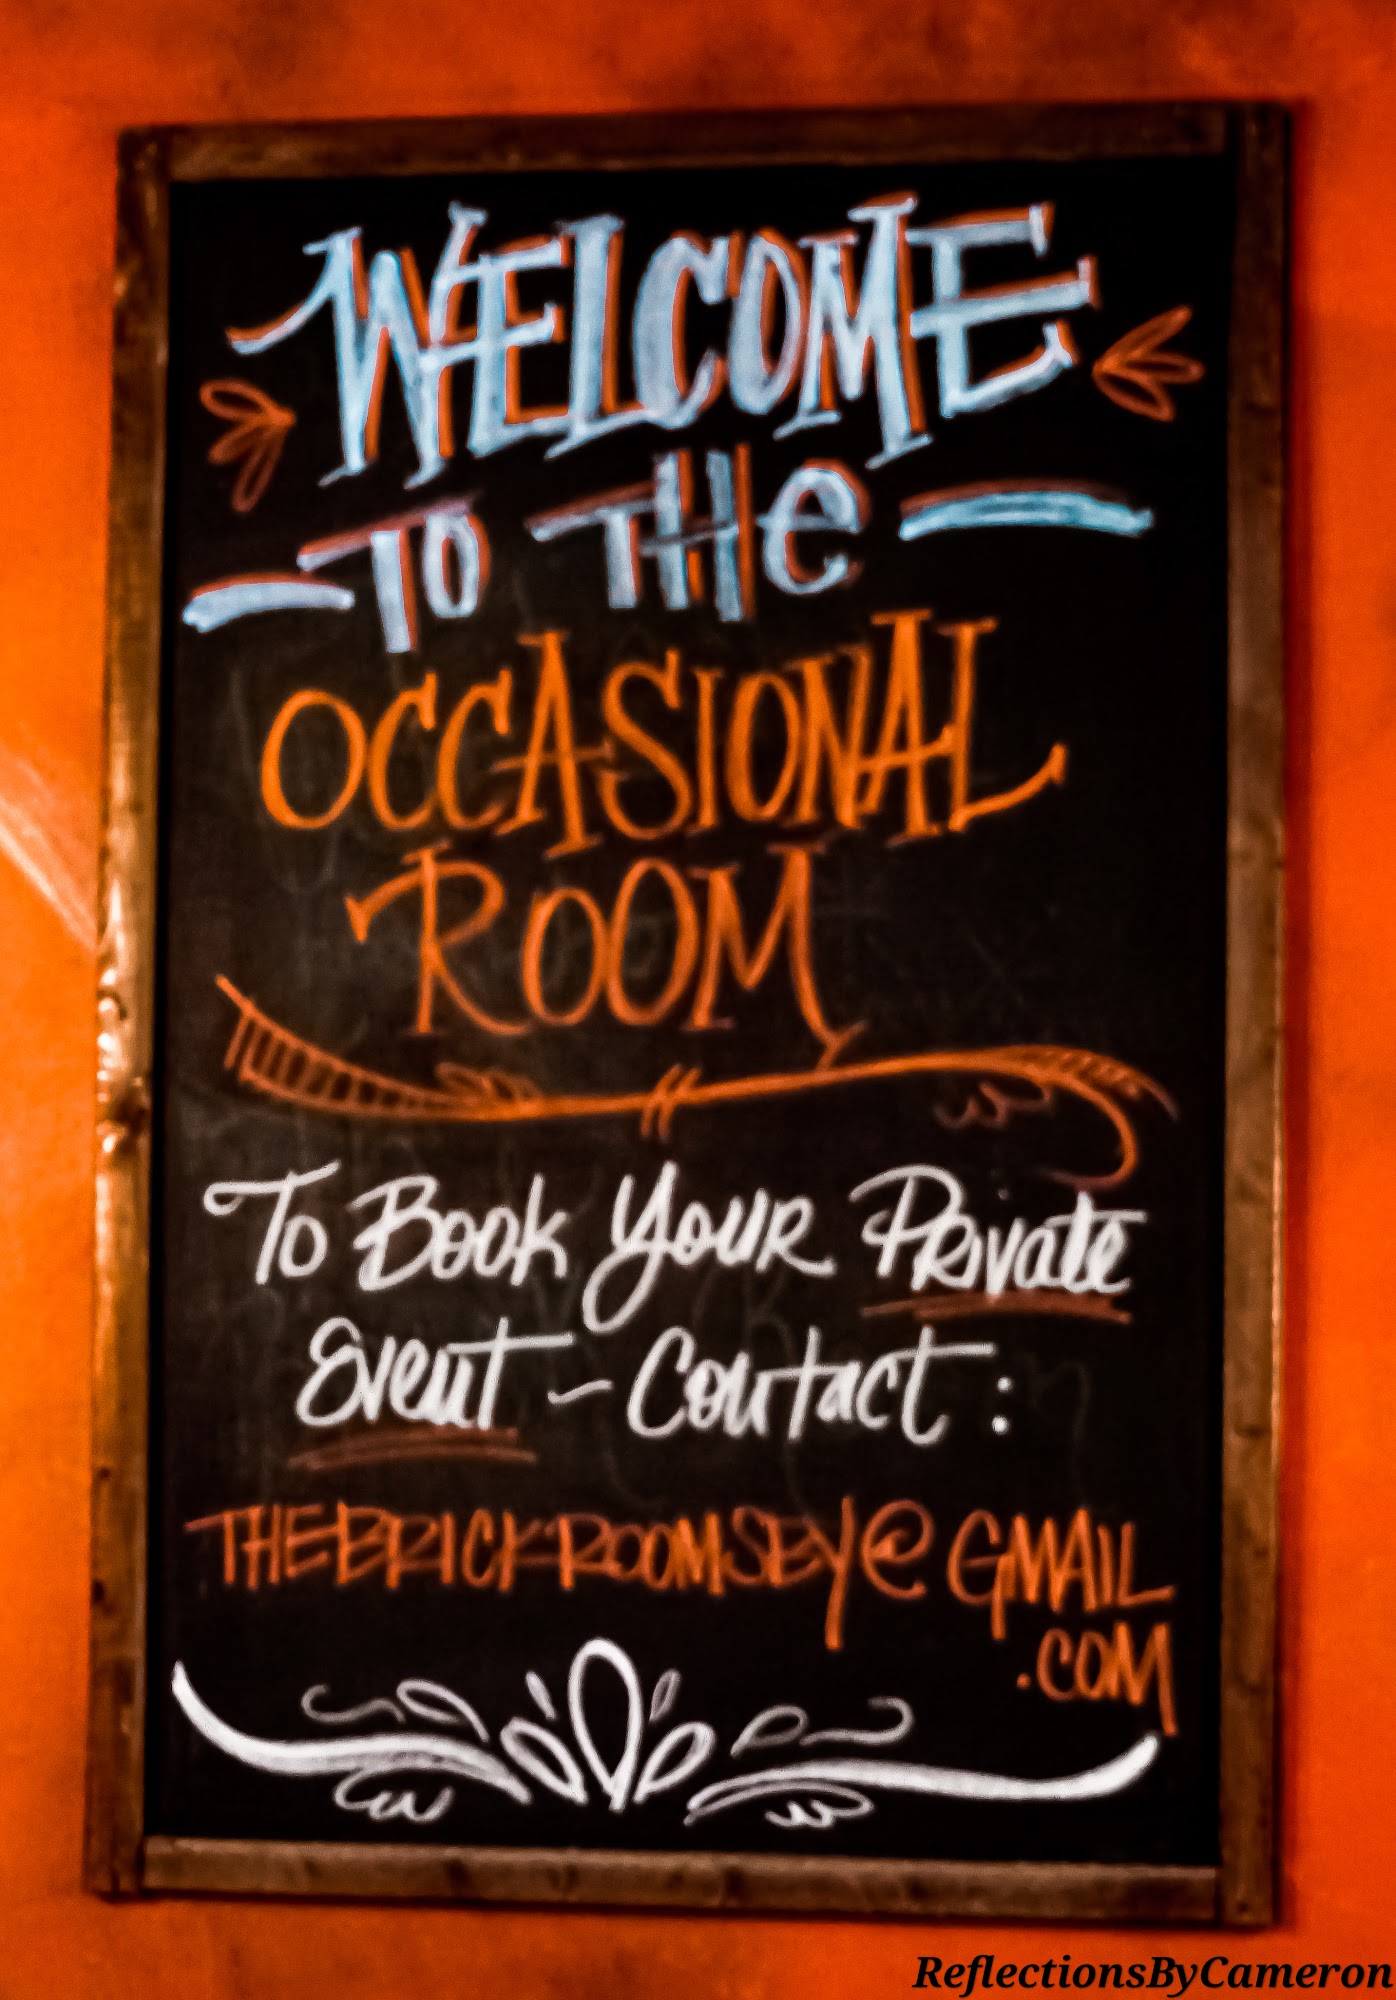 WELCOME
TO THE
OCCASIONAL
ROOM
To Book Your Private
Event - Contact :
THEBRICKROOMSBY@GMAIL
.COM
ReflectionsByCameron